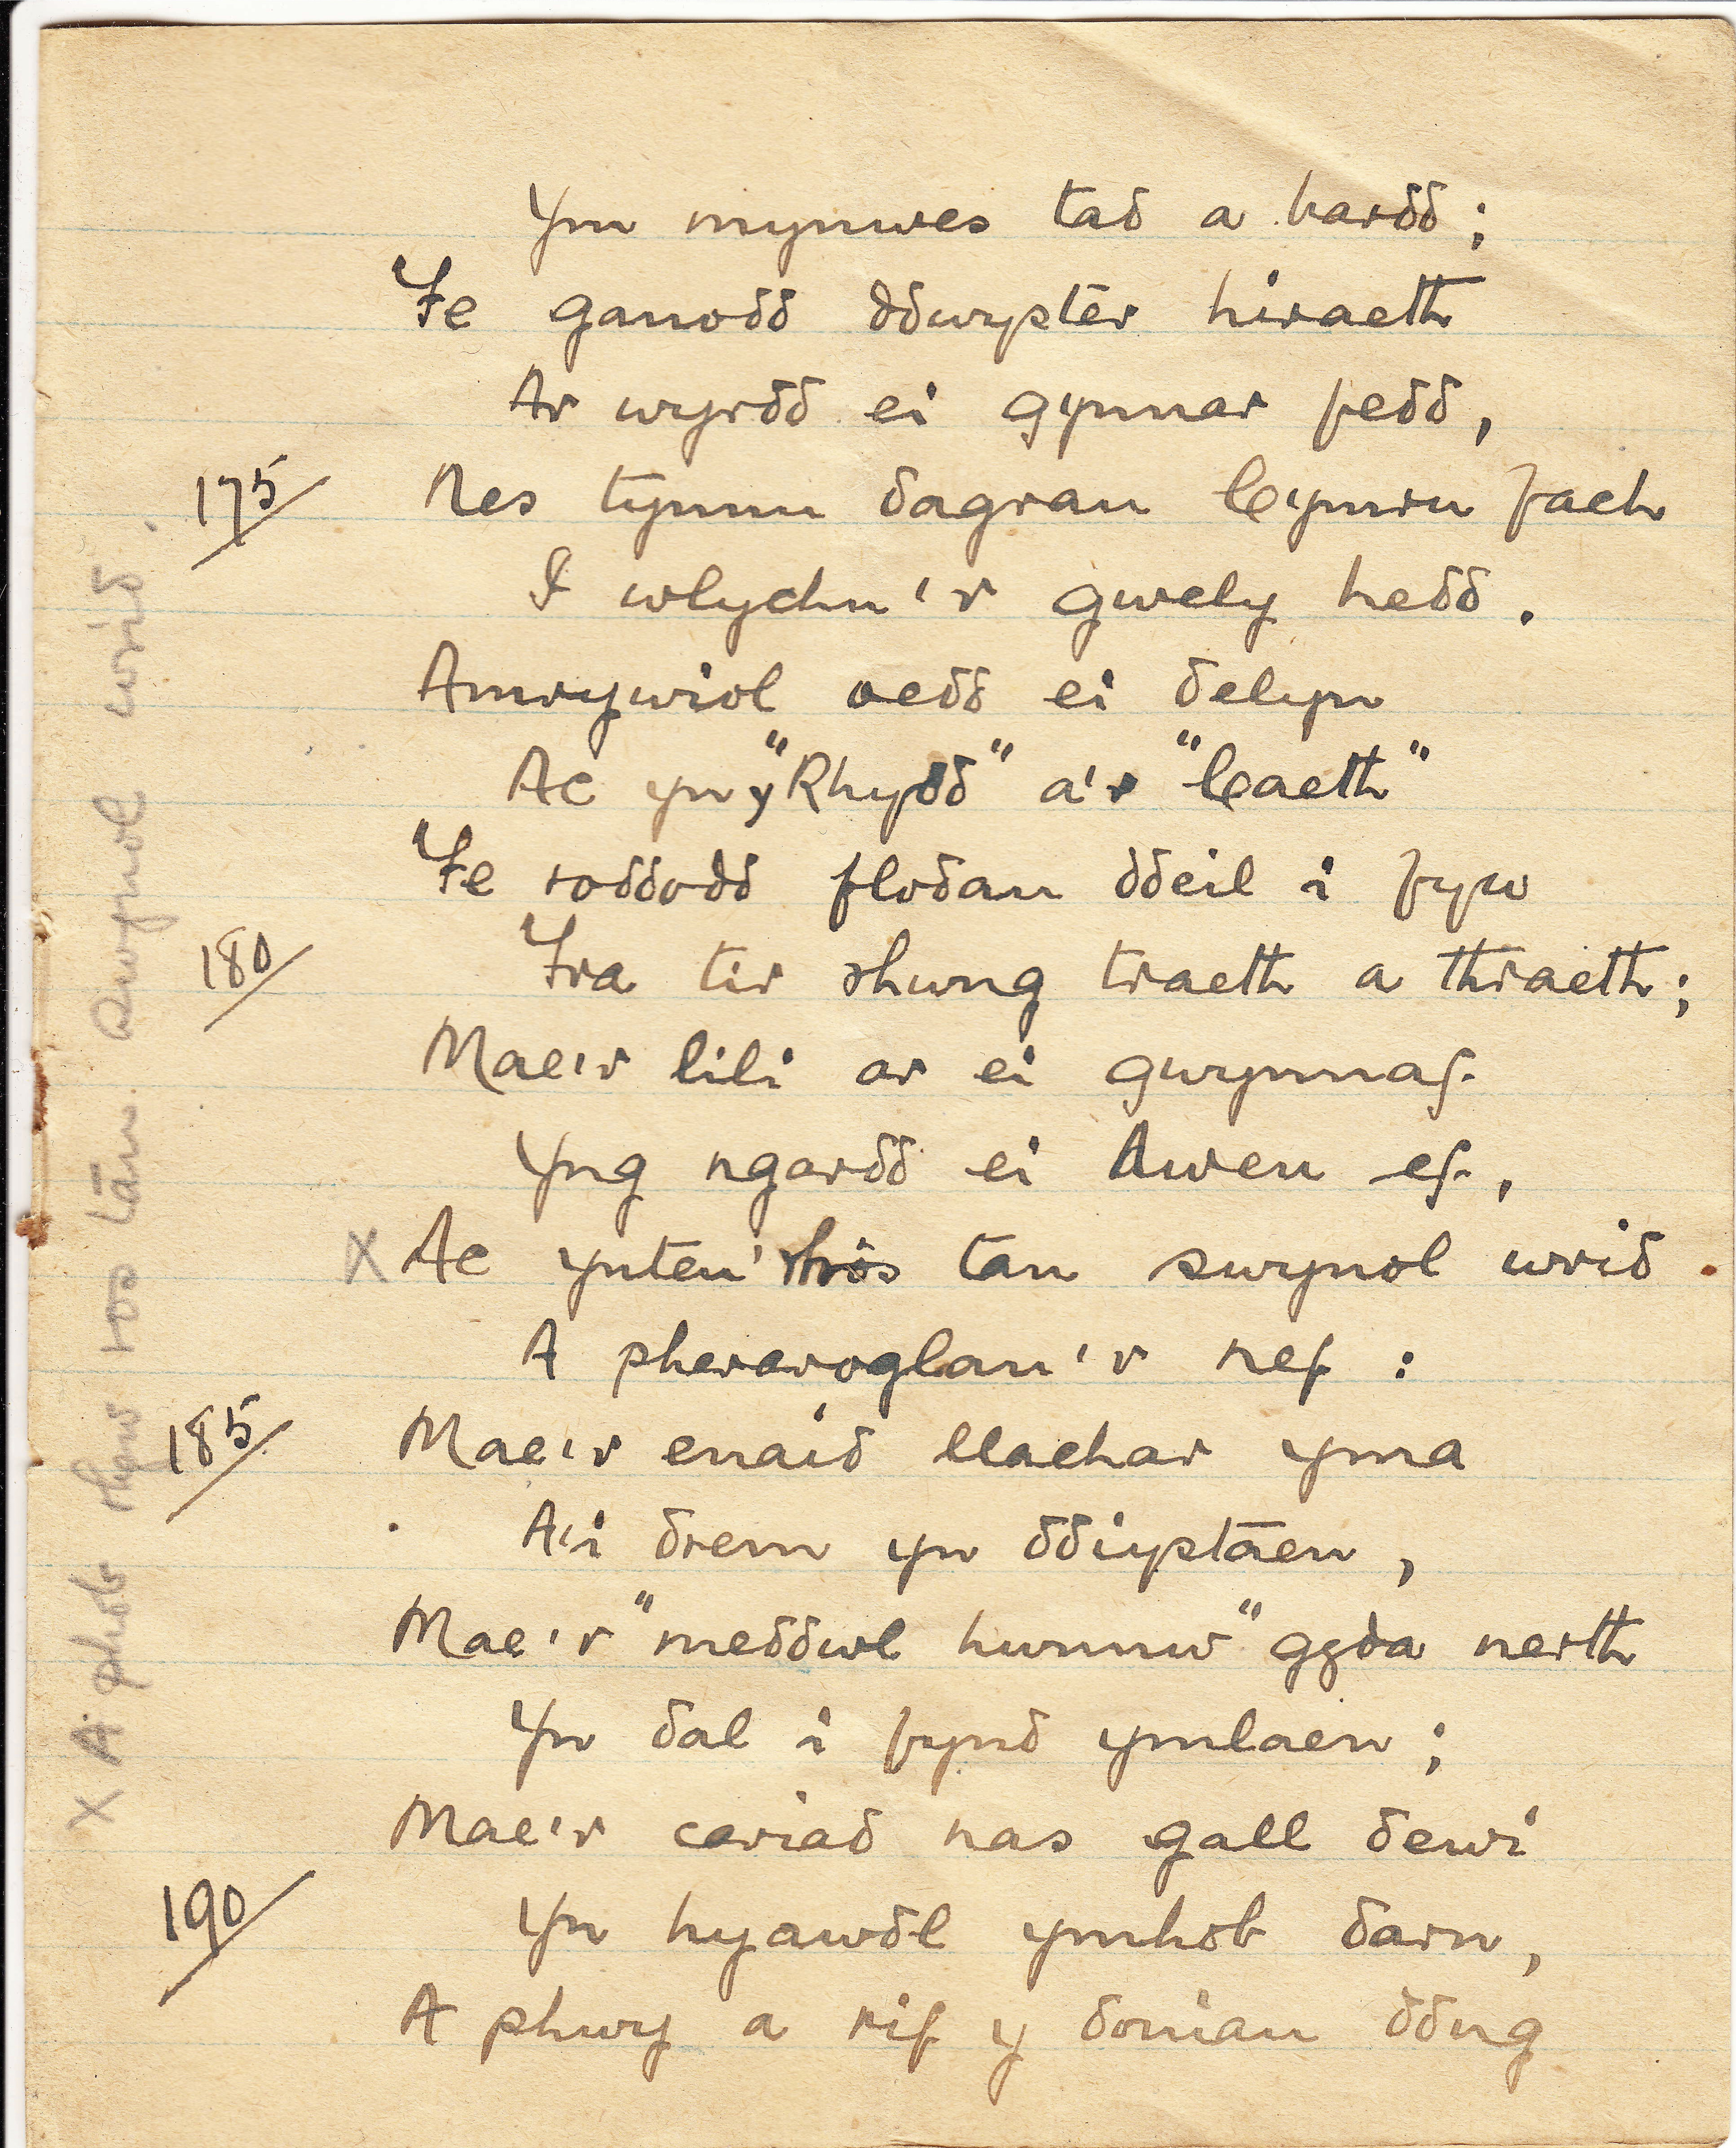 Ym mynwes tad a bardd;
Fe ganodd ddwyster hiraeth
Ar wyrdd ei gynnar fedd,
175/ Nes tynnu dagrau Cymru fach
I wlychu'r gwely hedd.
Amrywiol oedd ei delyn
Ac yn y "Rhydd" a'r "Caeth"
Fe roddodd flodau ddeil i fyw
180/ Tra tir rhwng traeth a thraeth;
Mae'r lili ar ei gwynnaf
Yng ngardd ei Awen ef,
X Ac ynteu'r rhôs tan swynol wrid
A pheraroglau'r nef:
185/ Mae'r enaid llachar yma
A'i drem yn ddiystaen,
Mae'r "meddwl hwnnw" gyda nerth
Yn dal i fynd ymlaen;
Mae'r cariad nas gall dewi
190/ Yn hyawdl ymhob darn,
A phwy a rif y doniau ddug
X A phob rhyw ros tān swynol wrid.